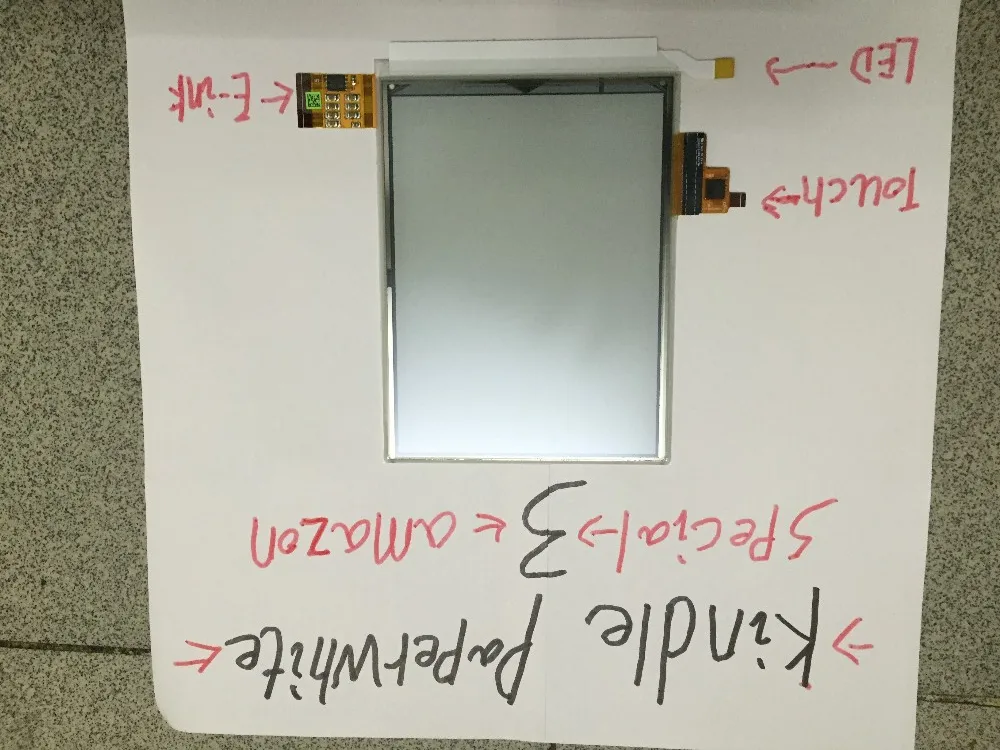 → Kindle Paperwhite ←
special → 3 ← amazon
Touch →
LED → ← E-ink